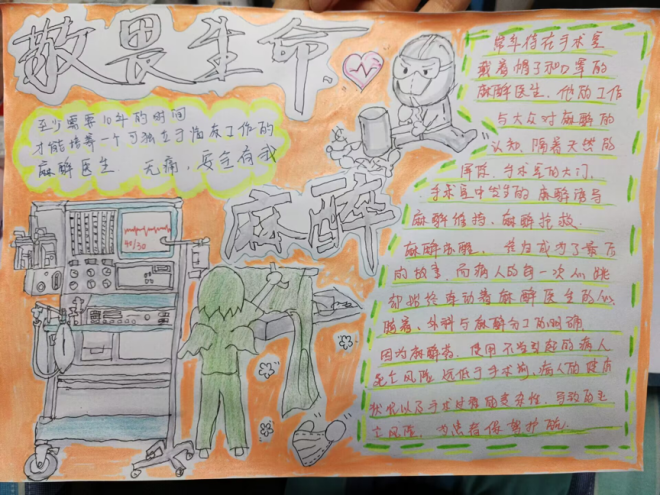 敬畏生命
至少需要10年的时间
才能培养一个可独立于临床工作的
麻醉医生 无痛,安全有我
麻醉
90/30
常年待在手术室
戴着帽子和口罩的
麻醉医生,他的工作
与大众对麻醉的
认知,隔着天然的
屏障,手术室的大门,
手术室中发生的麻醉诱导
麻醉维持,麻醉抢救
麻醉苏醒,
的故事,而病人的每一次心跳
都能牵动着麻醉医生的心
脑着,外科与麻醉分工的明确,
因为麻醉药,使用不当引起的病人
死亡风险远低于手术前,病人的健康
状况以及手术过程的复杂性,导致的死
亡风险,为患者保驾护航